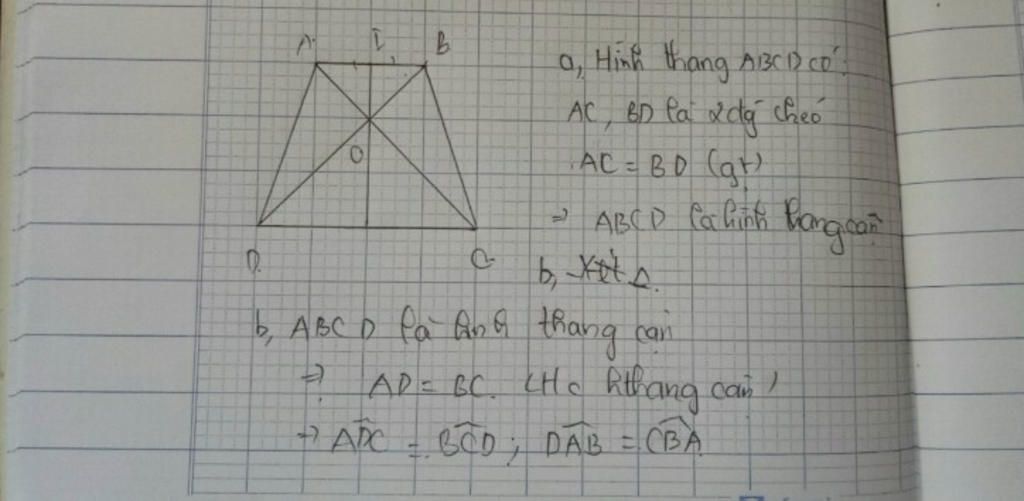 A I B
O
D C
a, Hình thang ABCD có:
AC, BD là 2 đg chéo
AC = BD (gt)
=> ABCD là hình thang cân
b, Xét Δ.
b, ABCD là hình thang cân
=> AD = BC. (Hc hthang cân)
=> ADC = BCD ; DAB = CBA